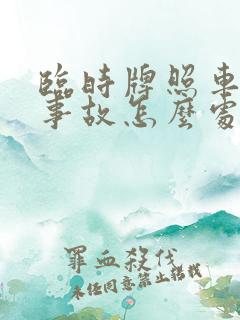 臨時牌照車
事故怎麼處
罪血殺伐
未經同意禁止搭載